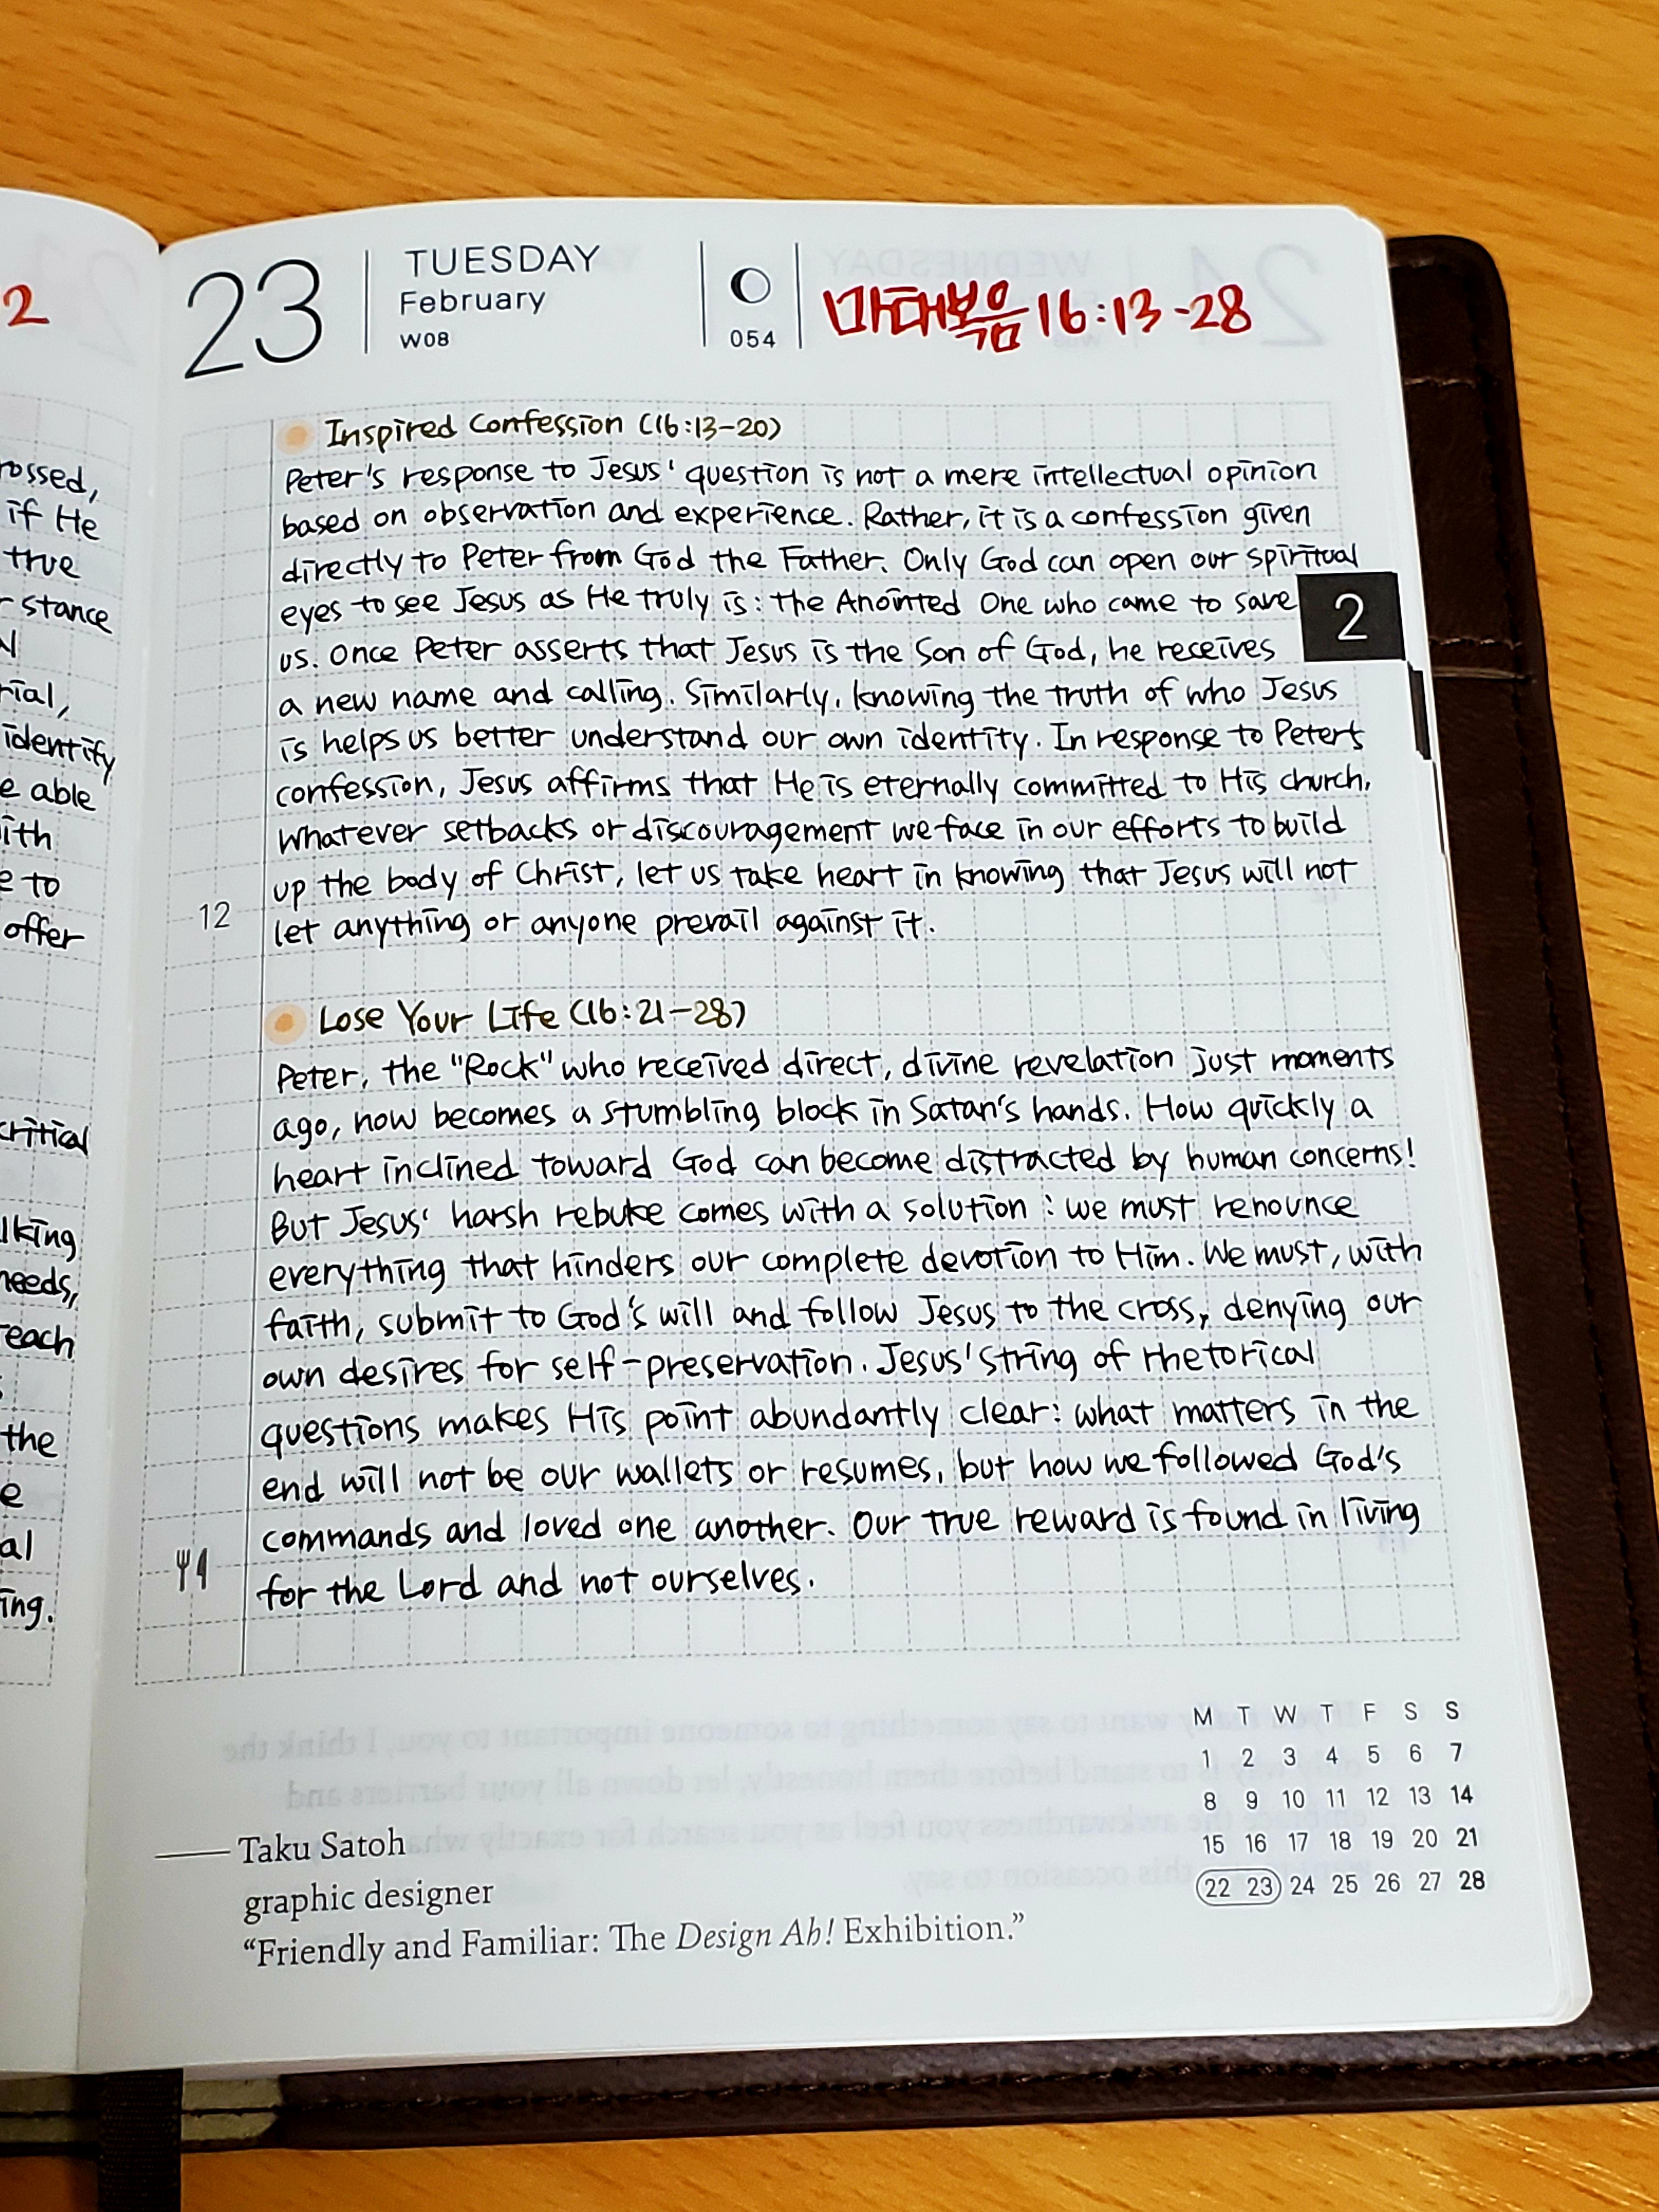 2
rossed,
if He
true
stance
rial,
identify
e able
ith
e to
offer
critical
lking
needs,
reach
the
e
al
ing.
23
TUESDAY
February
W08
054
마태복음 16:13-28
Inspired Confession (16:13-20)
Peter's response to Jesus' question is not a mere intellectual opinion
based on observation and experience. Rather, it is a confession given
directly to Peter from God the Father. Only God can open our spiritual
eyes to see Jesus as He truly is: the Anointed One who came to save
2
us. Once Peter asserts that Jesus is the Son of God, he receives
a new name and calling. Similarly, knowing the truth of who Jesus
is helps us better understand our own identity. In response to Peter's
confession, Jesus affirms that He is eternally committed to His church.
Whatever setbacks or discouragement we face in our efforts to build
up the body of Christ, let us take heart in knowing that Jesus will not
12
let anything or anyone prevail against it.
Lose Your Life (16:21-28)
Peter, the "Rock" who received direct, divine revelation just moments
ago, now becomes a stumbling block in Satan's hands. How quickly a
heart inclined toward God can become distracted by human concerns!
But Jesus' harsh rebuke comes with a solution: we must renounce
everything that hinders our complete devotion to Him. We must, with
faith, submit to God's will and follow Jesus to the cross, denying our
own desires for self-preservation. Jesus' string of rhetorical
questions makes His point abundantly clear: what matters in the
end will not be our wallets or resumes, but how we followed God's
commands and loved one another. Our true reward is found in living
for the Lord and not ourselves.
M T W T F S S
1 2 3 4 5 6 7
8 9 10 11 12 13 14
15 16 17 18 19 20 21
22 23 24 25 26 27 28
Taku Satoh
graphic designer
“Friendly and Familiar: The Design Ah! Exhibition.”